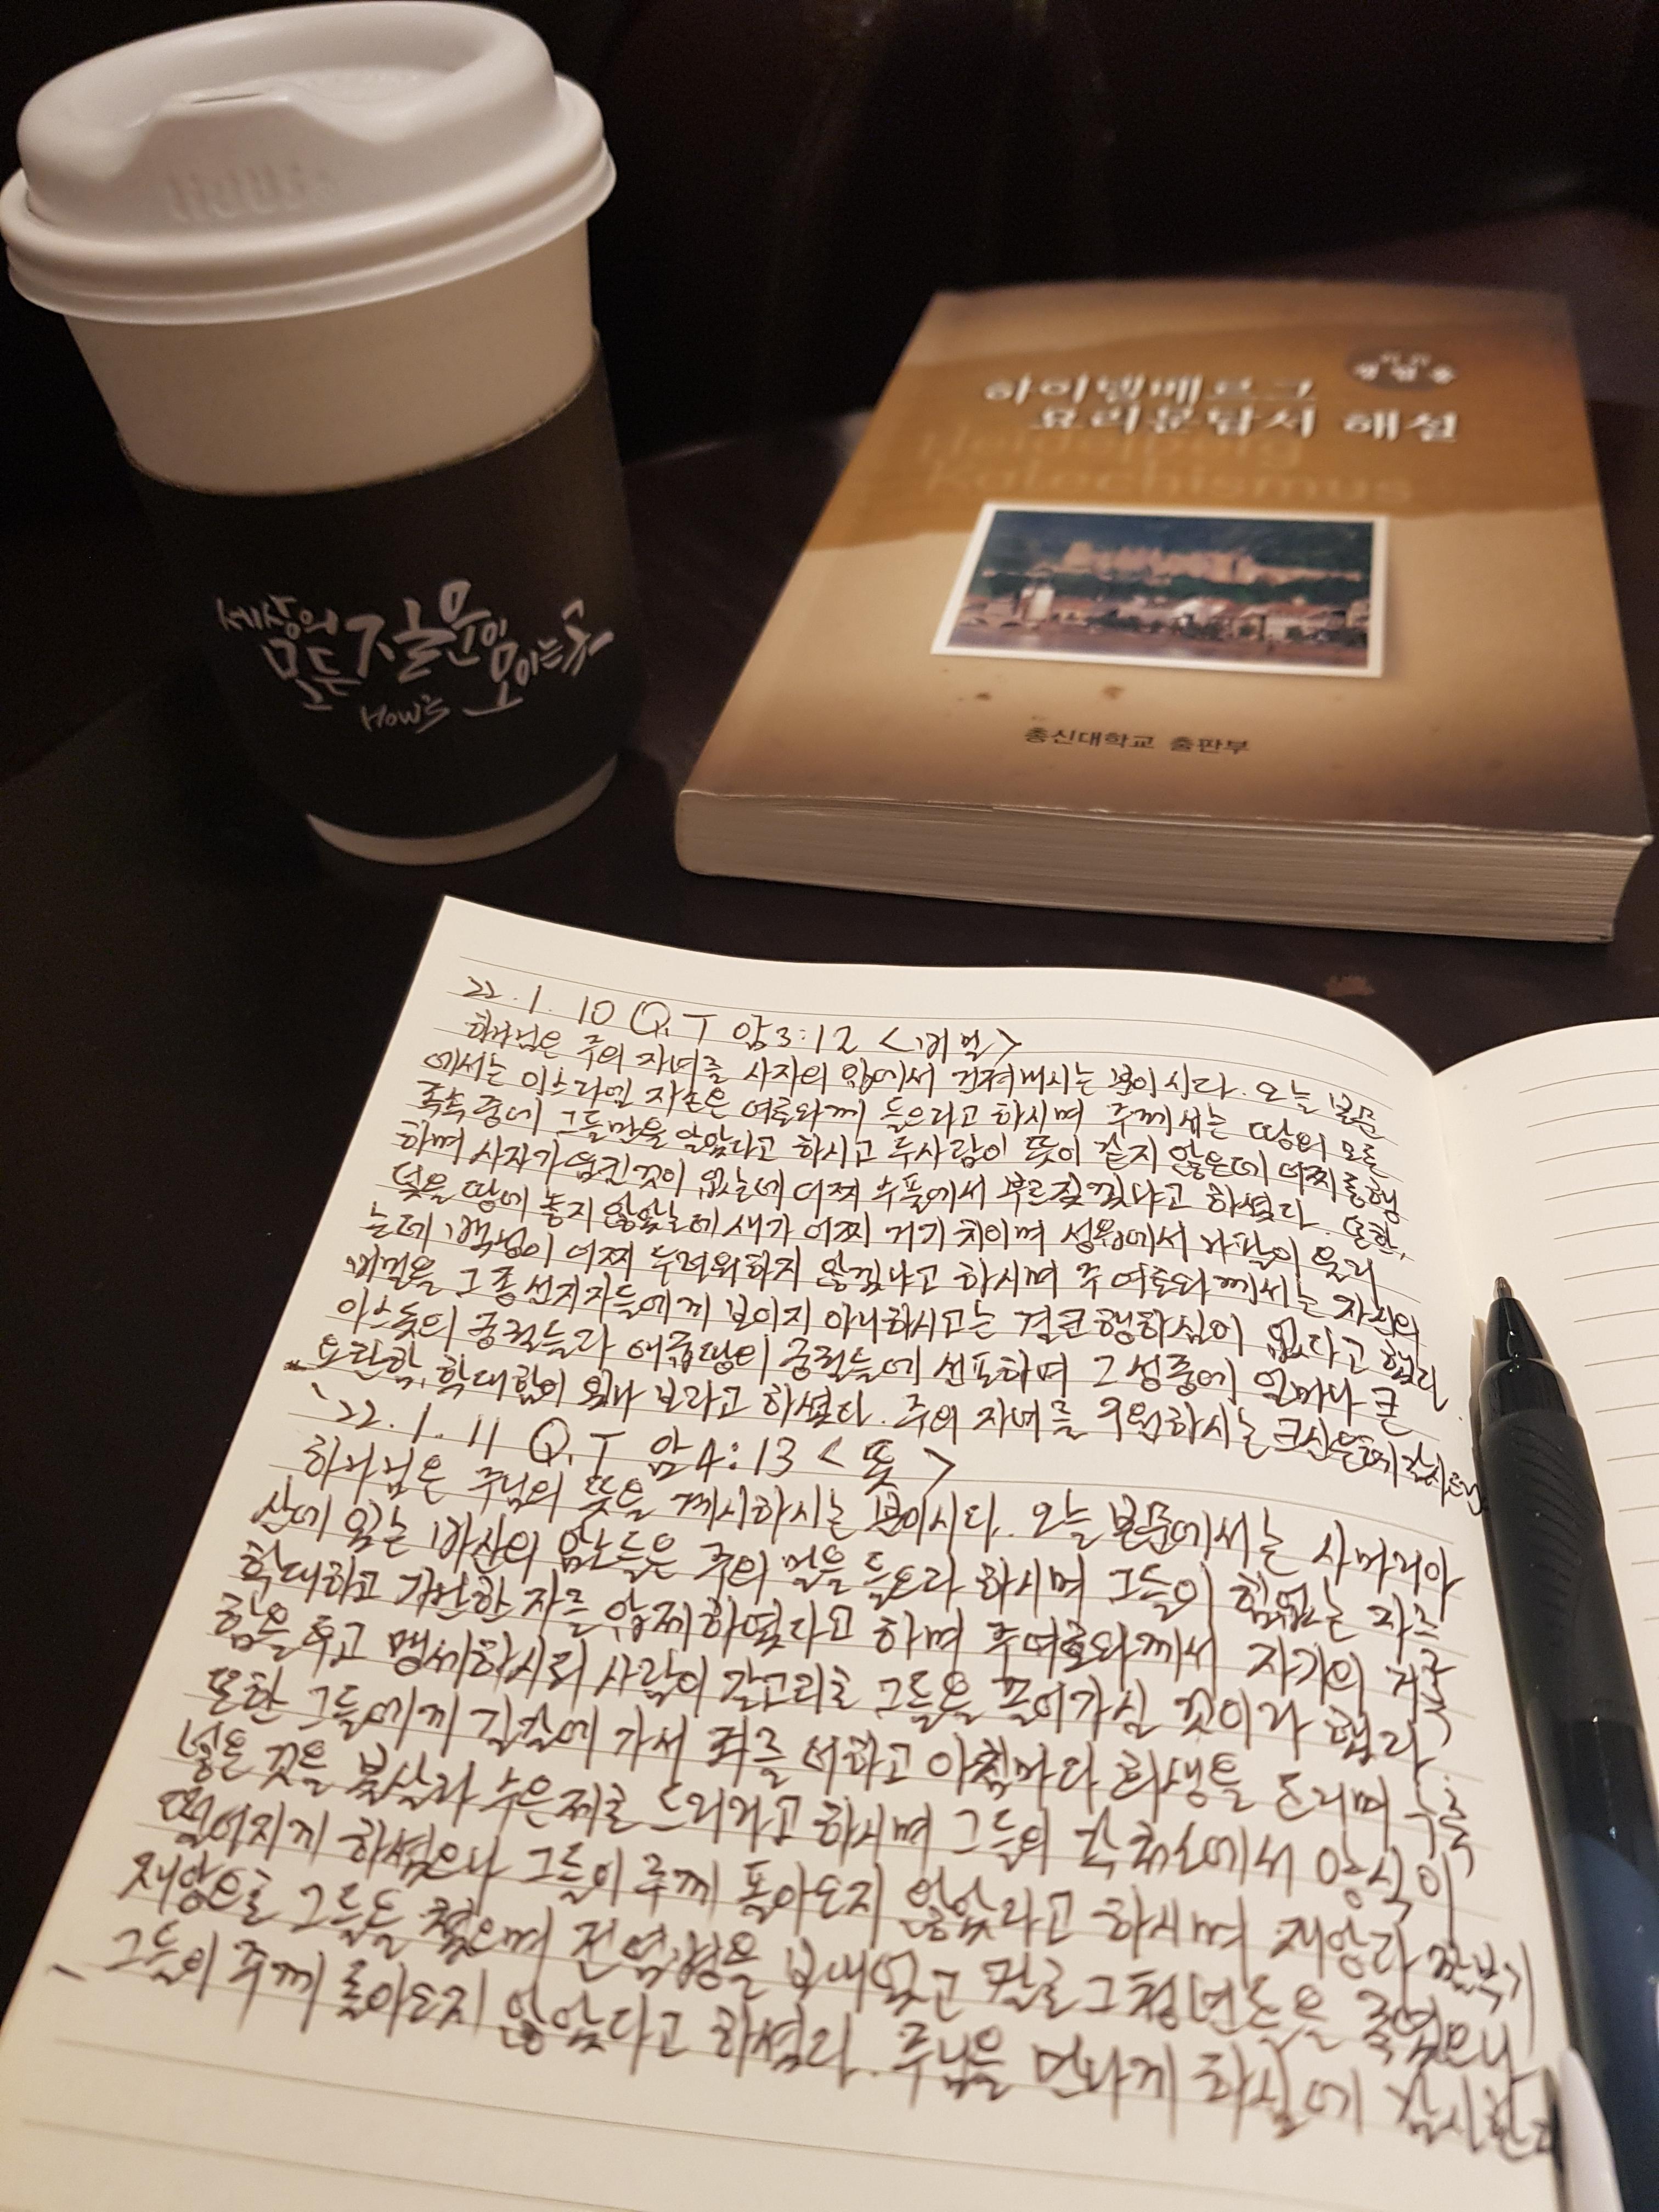 세상의
모든 질문이
모이는 家
How's
하이델베르그
요리문답서 해설
Heidelberg
Katechismus
총신대학교 출판부
22. 1. 10 Q.T 암3:12 <비밀>
하나님은 주의 자녀를 사자의 입에서 건져내시는 분이시다. 오늘 본문
에서는 이스라엘 자손은 여호와께 들으라고 하시며 주께서는 땅의 모든
족속 중에 그들만을 알았다고 하시고 두사람이 뜻이 같지 않은데 어찌 동행
하며 사자가 움킨것이 없는데 어찌 수풀에서 부르짖겠냐고 하셨다. 또한,
덫을 땅에 놓지 않았는데 새가 어찌 거기 치이며 성읍에서 나팔이 울리
는데 백성이 어찌 두려워하지 않겠냐고 하시며 주 여호와께서는 자신의
비밀을 그 종 선지자들에게 보이지 아니하시고는 결코 행하심이 없다고 했다.
아스돗의 궁궐들과 애굽땅의 궁궐들에 선포하며 그 성중에 얼마나 큰
요란함, 학대함이 있나 보라고 하셨다. 주의 자녀를 구원하시는 크신
22. 1. 11 Q.T 암4:13 <뜻>
하나님은 주님의 뜻을 께시하시는 분이시다. 오늘 본문에서는 사마리아
산에 있는 바산의 암소들은 주의 말을 들으라 하시며 그들이 힘없는 자를
학대하고 가난한 자를 압제하였다고 하며 주여호와께서 자기의 거룩
함을 두고 맹세하시되 사람이 갈고리로 그들을 끌어가실 것이라 했다.
또한 그들에게 길갈에 가서 죄를 더하고 아침마다 희생을 드리며 누룩
넣은 것을 불살라 수은제로 드리라고 하시며 그들의 각 처소에서 양식이
떨어지게 하셨으나 그들이 주께 돌아오지 않았다고 하시며 재앙과 깜부기
재앙으로 그들을 쳤으며 전염병을 보내었고 칼로 그 청년들을 죽였으나
그들이 주께 돌아오지 않았다고 하셨다. 주님을 만나게 하심에 감사한다